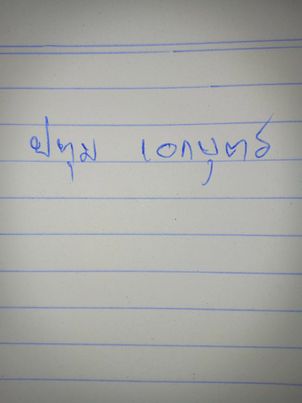 ปทุม เอกบุตร์